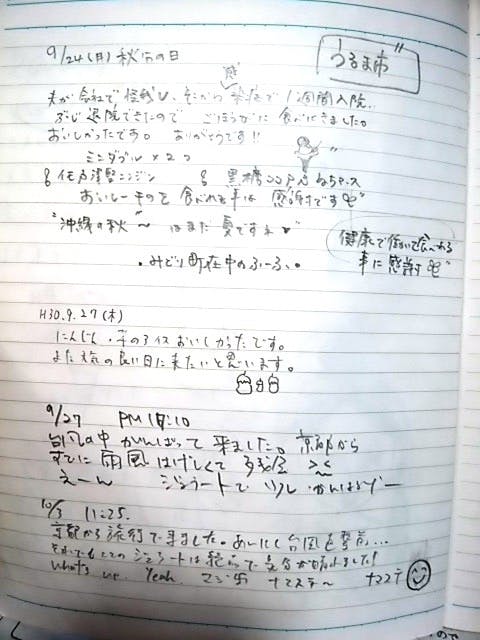 9/24(月) 秋分の日
うるま市
夫が会社で怪我し、それから感染症で1週間入院。
ぶじ退院できたので ごほうびに 食べにきました。
おいしかったです。 ありがとうです!!
ミニダブル×2つ
黒糖
おいしーものを 食べれる事は 感謝です
"沖縄の秋"～ はまだ 夏ですネ♥
健康で働いて食べれる
事に感謝
・みどり町在中のふーふ・
H30.9.27(木)
にんじん・芋のアイスおいしかったです。
また天気の良い日に来たいと思います。
9/27 PM 1:10
台風の中 がんばって 来ました。京都から
すでに 雨風 はげしくて 残念 ><
えーん ジェラートで
10/3 11:25.
京都から旅行で来ました。あいにく台風
それでもここのジェラートは
what's up. Yeah. マジ卍 ナマステ～ ナマステ